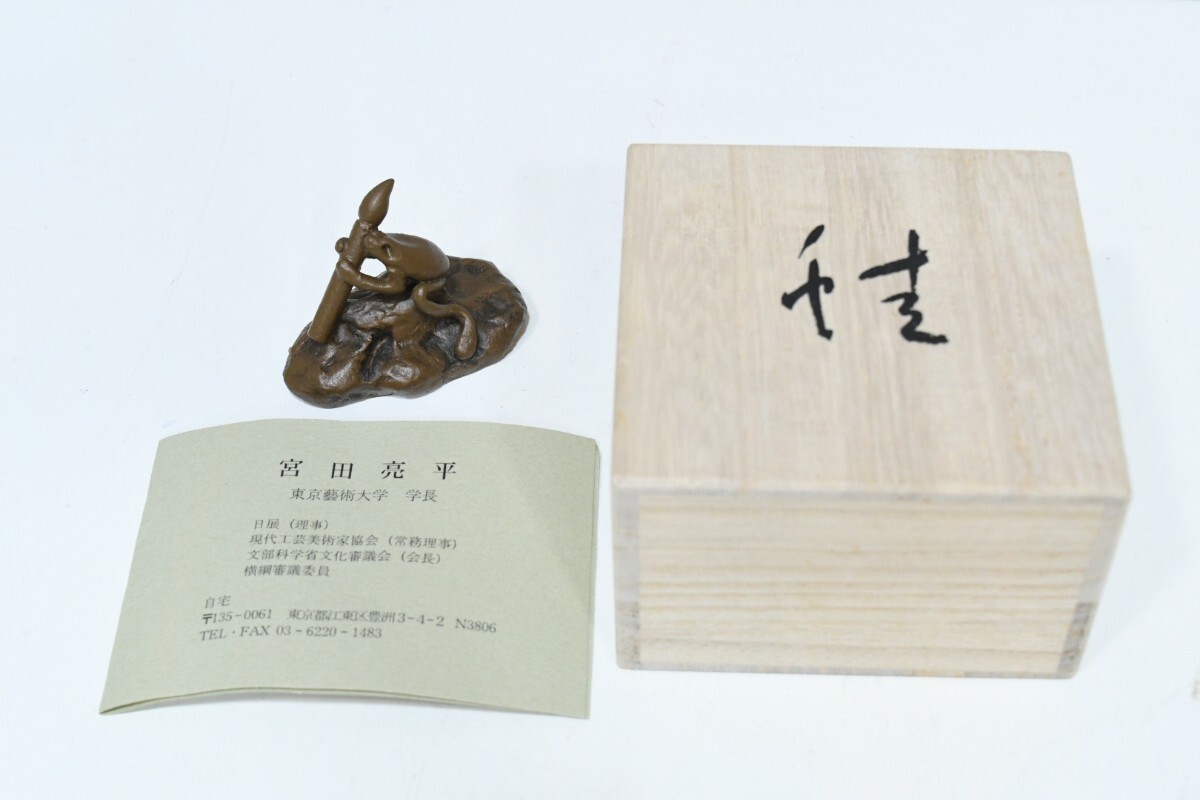 宮田亮平
東京藝術大学 学長
日展（理事）
現代工芸美術家協会（常務理事）
文部科学省文化審議会（会長）
横綱審議委員
自宅
〒135-0061 東京都江東区豊洲3-4-2 N3806
TEL・FAX 03-6220-1483